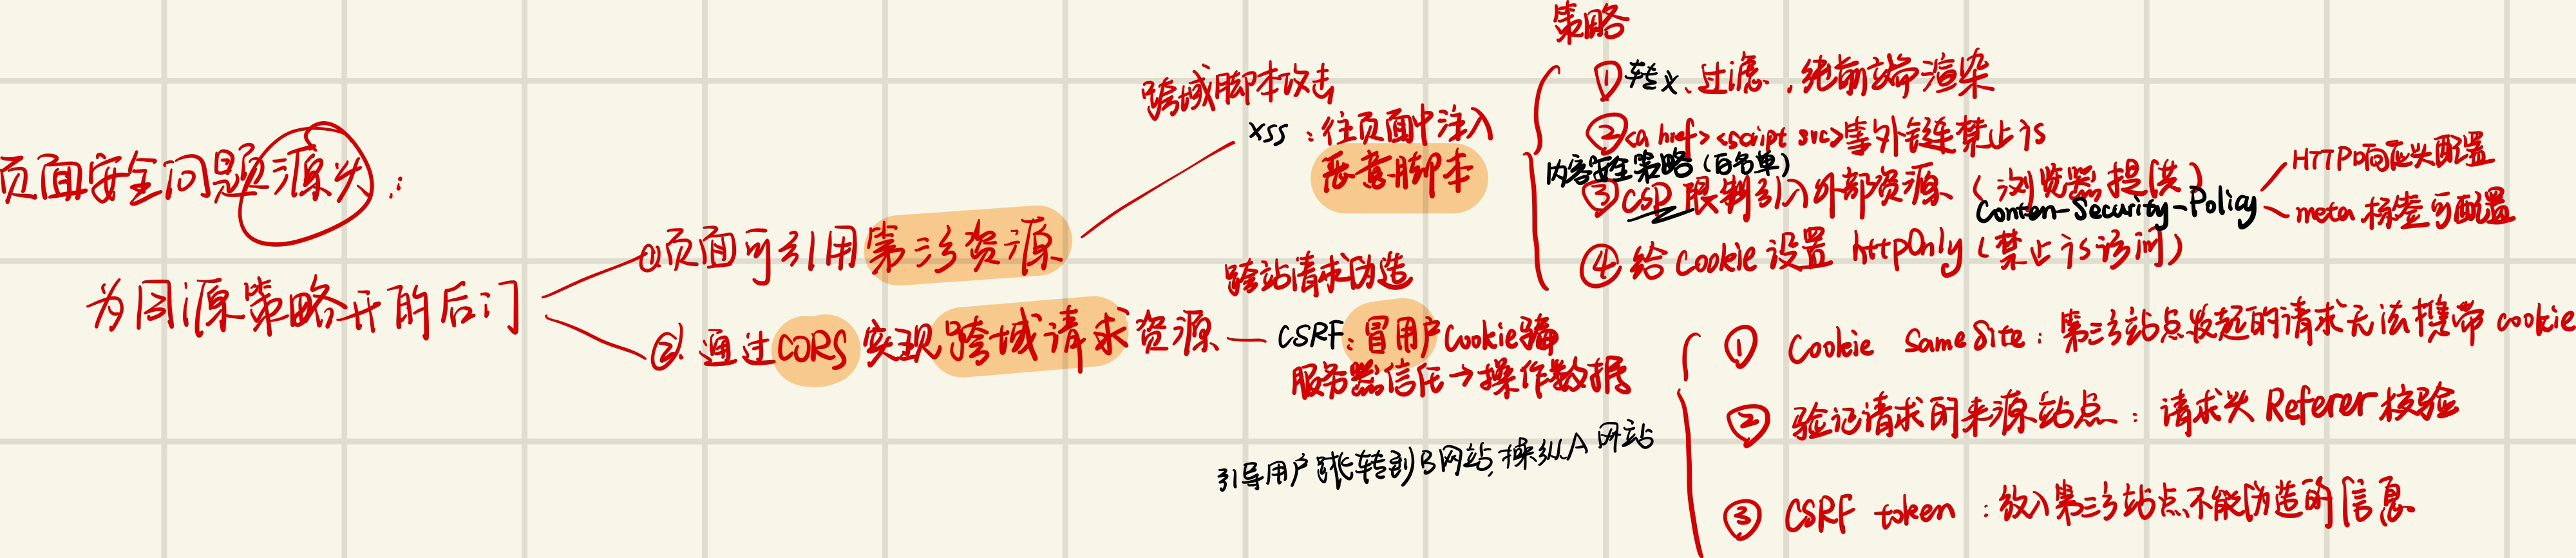 页面安全问题源头：
为同源策略开的后门
①页面可引用第三方资源
跨域脚本攻击
XSS：往页面中注入
恶意脚本
策略
①转义、过滤，纯前端渲染
②<a href><script src>等外链禁止js
内容安全策略（白名单）
③CSP 限制引入外部资源（浏览器提供）
Conten-Security-Policy
HTTP响应头配置
meta 标签可配置
④给 Cookie 设置 httpOnly（禁止js访问）
②通过CORS实现跨域请求资源
跨站请求伪造
CSRF：冒用户Cookie骗
服务器信任→操作数据
引导用户跳转到B网站，操纵A网站
① Cookie SameSite：第三方站点发起的请求无法携带 cookie
② 验证请求的来源站点：请求头 Referer 校验
③ CSRF token：放入第三方站点不能伪造的信息